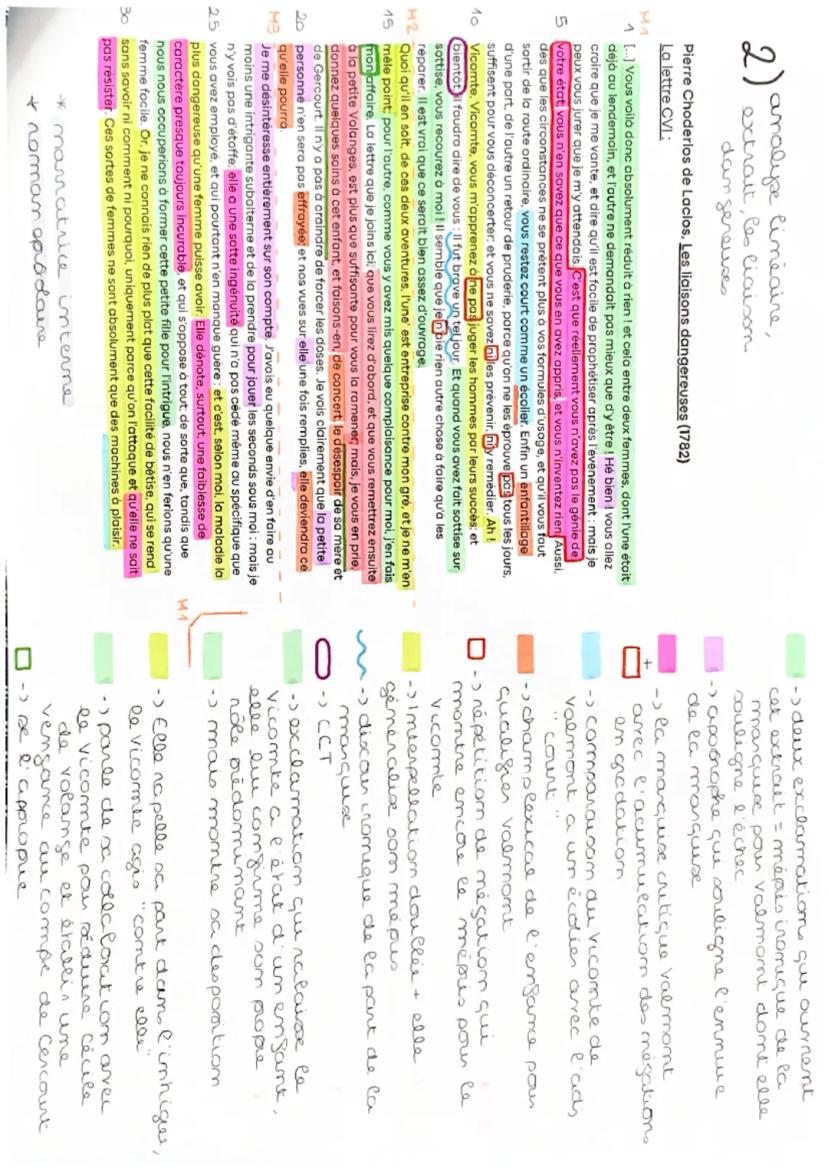 2) analyse linéaire,
extrait, les liaison
dangereuses
Pierre Choderlos de Laclos, Les liaisons dangereuses (1782)
La lettre CVI :
M1
1 [...] Vous voilà donc absolument réduit à rien ! et cela entre deux femmes, dont l'une était
déjà au lendemain, et l'autre ne demandait pas mieux que d'y être ! Hé bien ! vous allez
croire que je me vante, et dire qu'il est facile de prophétiser après l'événement : mais je
peux vous jurer que je m'y attendais. C'est que réellement vous n'avez pas le génie de
5 votre état; vous n'en savez que ce que vous en avez appris, et vous n'inventez rien. Aussi,
dès que les circonstances ne se prêtent plus à vos formules d'usage, et qu'il vous faut
sortir de la route ordinaire, vous restez court comme un écolier. Enfin un enfantillage
d'une part, de l'autre un retour de pruderie, parce qu'on ne les éprouve pas tous les jours,
suffisent pour vous déconcerter; et vous ne savez ni les prévenir, ni y remédier. Ah !
10 Vicomte, Vicomte, vous m'apprenez à ne pas juger les hommes par leurs succès; et
bientôt, il faudra dire de vous : Il fut brave un tel jour. Et quand vous avez fait sottise sur
sottise, vous recourez à moi ! Il semble que je n'aie rien autre chose à faire qu'à les
réparer. Il est vrai que ce serait bien assez d'ouvrage.
M2
Quoi qu'il en soit, de ces deux aventures, l'une est entreprise contre mon gré, et je ne m'en
15 mêle point; pour l'autre, comme vous y avez mis quelque complaisance pour moi, j'en fais
mon affaire. La lettre que je joins ici, que vous lirez d'abord, et que vous remettrez ensuite
à la petite Volanges, est plus que suffisante pour vous la ramener: mais, je vous en prie,
donnez quelques soins à cet enfant, et faisons-en, de concert, le désespoir de sa mère et
de Gercourt. Il n'y a pas à craindre de forcer les doses. Je vois clairement que la petite
20 personne n'en sera pas effrayée; et nos vues sur elle une fois remplies, elle deviendra ce
qu'elle pourra.
M3
Je me désintéresse entièrement sur son compte. J'avais eu quelque envie d'en faire au
moins une intrigante subalterne et de la prendre pour jouer les seconds sous moi : mais je
n'y vois pas d'étoffe; elle a une sotte ingénuité qui n'a pas cédé même au spécifique que
25 vous avez employé, et qui pourtant n'en manque guère : et c'est, selon moi, la maladie la
plus dangereuse qu'une femme puisse avoir. Elle dénote, surtout, une faiblesse de
caractère presque toujours incurable, et qui s'oppose à tout; de sorte que, tandis que
nous nous occuperions à former cette petite fille pour l'intrigue, nous n'en ferions qu'une
femme facile. Or, je ne connais rien de plus plat que cette facilité de bêtise, qui se rend
30 sans savoir ni comment ni pourquoi, uniquement parce qu'on l'attaque et qu'elle ne sait
pas résister. Ces sortes de femmes ne sont absolument que des machines à plaisir.
* narratrice interne
* roman épistolaire
-> deux exclamations qui ouvrent
cet extrait = mépris ironique de la
marquise pour valmont dont elle
souligne l'échec
-> apostrophe qui souligne l'ennuie
de la marquise
-> la marquise critique valmont
+ avec l'accumulation des négations
en gradation
-> comparaison du vicomte de
valmont a un écolier avec l'adj
"court"
-> champ lexicale de l'enfance pour
qualifier valmont
-> répétition de négation qui
montre encore le mépris pour le
vicomte
-> Interpellation doublée + elle
généralise son mépris
-> discour ironique de la part de la
marquise
-> CCT
-> exclamation qui rabaisse le
vicomte a l'état d'un enfant,
elle lui confirme son propre
rôle prédominant
-> mais montre sa desposition
M1
-> Elle rapelle sa part dans l'intrigue,
le vicomte agis "contre elle"
-> parle de sa collaboration avec
le vicomte pour séduire Cécile
de volange et établir une
vengance au compte de Gercourt
-> se l'approprie